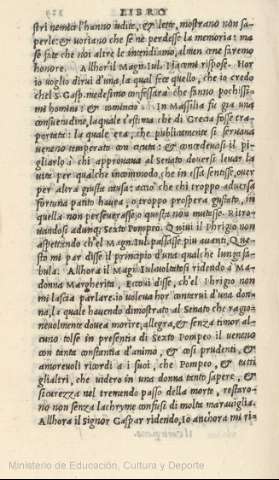 LIBRO
stri nemici l'hanno udite, & lette, mostrano non sa-
perle: & voriano che se ne perdesse la memoria: ma
se fate che noi altre le intendiamo, almen ce ne faremo
honore. Allhor il Magn. Iul. Piacemi rispose. Hor
io voglio dirui d'una, la qual fece quello, che io credo
che'l S. Gasp. medesimo confessarà che fanno pochissi-
mi homini: & cominciò. In Massilia fu già una
consuetudine, laquale s'estima che di Grecia fosse tras-
portata: la quale era, che publicamente si servaua
veneno temperato con cicuta: & concedeuasi il pi-
gliarlo à chi approvaua al Senato doversi levar la
vita per qualche incommodo, che in essa sentisse, over
per altra giusta causa: acciò che chi troppo aduersa
fortuna patito haueua, o troppo prospera gustato, in
quella non perseuerasse, o questa non mutasse. Ritro-
uandosi adunq; Sexto Pompeo. Quiui il Phrigio non
aspettando ch'el Magn. Iul. passasse piu auanti, Que-
sto mi par disse il principio d'una qualche lunga fa-
bula. Allhora il Mag. Iul. voltatosi ridendo à Ma-
donna Margherita, Eccoui disse, ch'el Phrigio non
mi lascia parlare. io voleua hor contarui d'una don-
na, la quale hauendo dimostrato al Senato che ragio-
neuolmente douea morire, allegra, & senza timor al-
cuno tolse in presentia di Sexto Pompeo il veneno
con tanta constantia d'animo, & cosi prudenti, &
amoreuoli ricordi a i suoi, che Pompeo, & tutti
gli altri, che videro in una donna tanto sapere, &
sicurezza nel tremendo passo della morte, restaro-
no non senza lachryme confusi di molta marauiglia.
Allhora il Signor Gaspar ridendo, Io anchora mi ri-
Ministerio de Educación, Cultura y Deporte